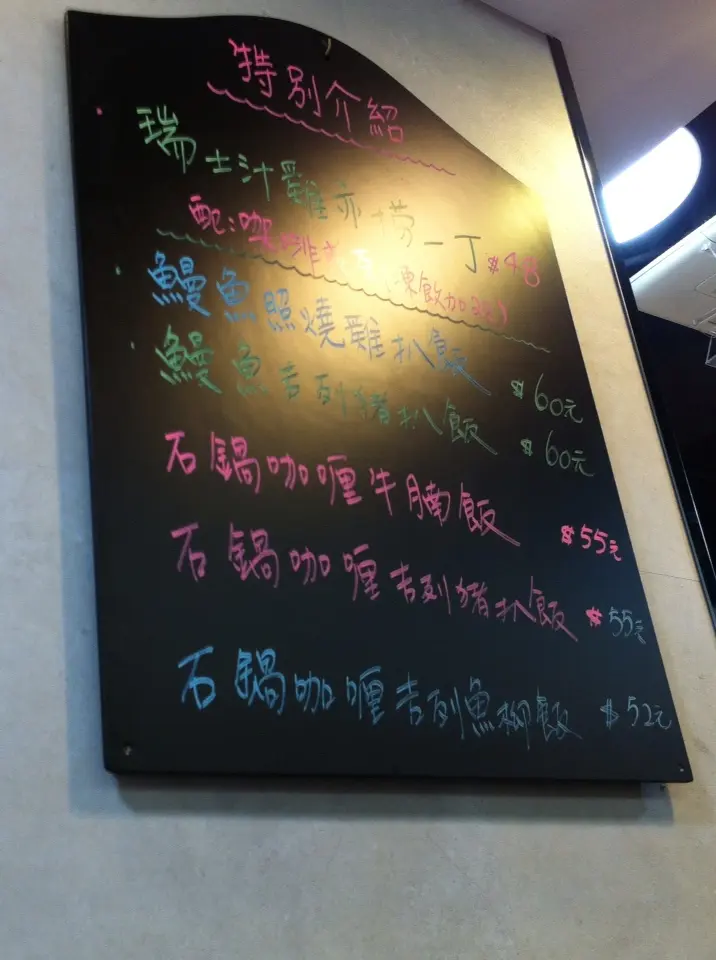 特別介紹
瑞士汁雞亦撈一丁 $48
配:咖啡 (凍飲加3元)
鰻魚照燒雞扒飯 $60元
鰻魚吉列豬扒飯 $60元
石鍋咖喱牛腩飯 $55元
石鍋咖喱吉列豬扒飯 $55元
石鍋咖喱吉列魚柳飯 $52元